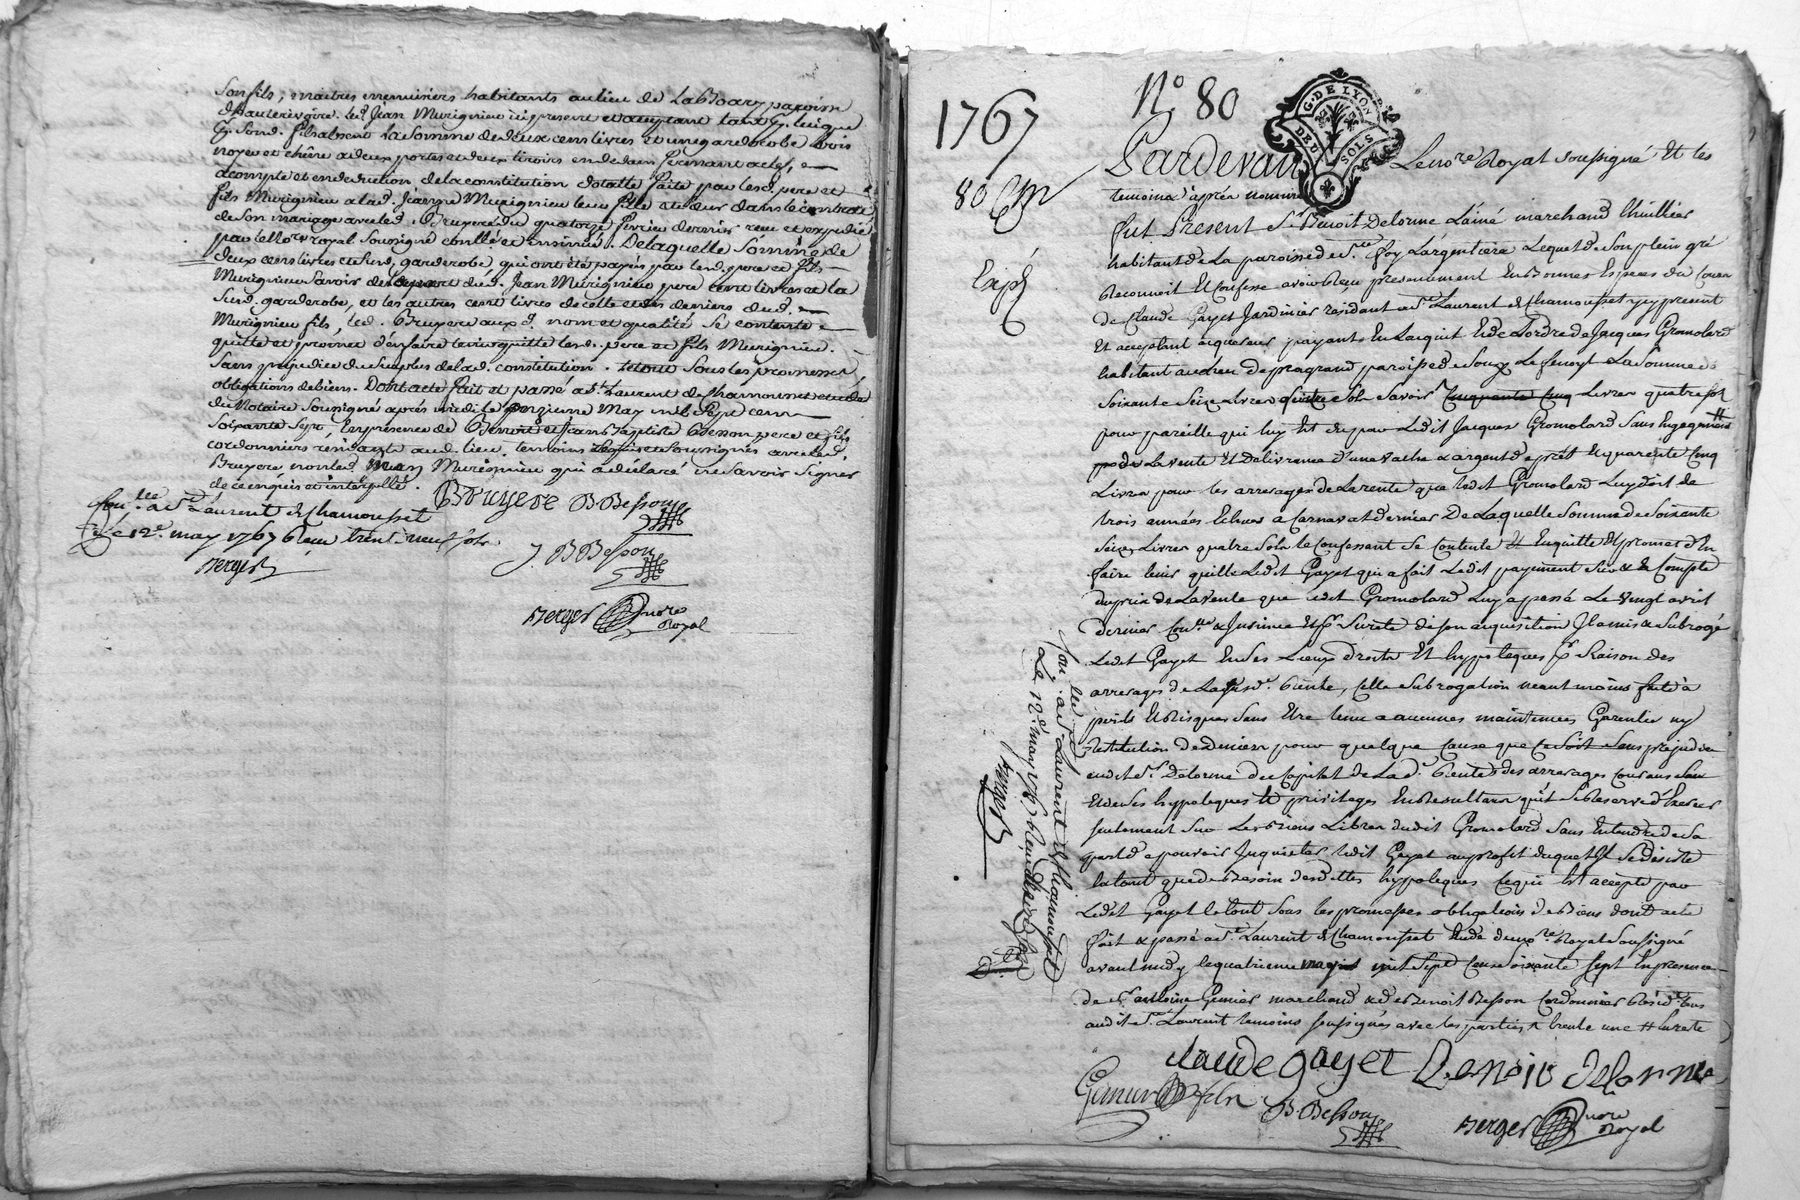 son fils, maitres menuisiers habitants au lieu de paroisse
d'hauterivoire led. Jean Murignieu icy present et acceptant tant
la somme de deux cens livres et une garderobe bois
noyer et chêne a deux portes et deux tiroirs en dedans fermant a clef,
acompte et en deduction de la constitution dotalle faite par lesd. pere et
fils Murignieu a lad. Jeanne Murignieu leur fille et soeur dans le contrat
de son mariage avec led. Bruyere du quatorze fevrier dernier recu et expedié
par le no.re royal soussigné conllé et insinué. De laquelle somme de
deux cens livres et susd. garderobe qui ont été payés par lesd. pere et fils
Murignieu savoir de la part dud. Jean Murignieu pere cent livres et la
susd. garderobe, et les autres cent livres de celle et des deniers dud.
Murignieu fils, led. Bruyere aux d. nom et qualité se contente
quitte et promet d'en faire tenir quitte lesd. pere et fils Murignieu.
sans prejudice du surplus de lad. constitution. le tout sous les promesses
obligations de biens. Dont acte fait et passé a St. Laurent de Chamousset etude
du Notaire soussigné après midi le onzieme May mil sept cens
soixante sept, en presence de Benoit et Jean Baptiste Besson pere et fils
cordonniers residants aud. lieu, temoins requis et soussignés avec led.
Bruyere non led. Jean Murignieu qui a déclaré ne savoir signer
de ce enquis et interpellé.
Bruyere B Besson
Con.lee a St. Laurent de Chamousset
le 12e. may 1767 Reçu trente neuf sols.
J. B Besson
Berger
Berger no.re Royal
1767
N° 80
G. DE LYON
DEUX SOLS
80
Expé
Pardevant Le no.re Royal soussigné et les
temoins après nommés
fut Present Sr. Benoit Delorme L'ainé marchand huillier
habitant de la paroisse de Ste. foy L'argentiere Lequel de son plein gré
Reconnoit et Confesse avoir Reçu presentement en bonnes Especes du Cours
de Claude Gayet Jardinier residant a St. Laurent de Chamousset icy present
et acceptant acquereur payant en L'acquit et de L'ordre de Jacques Gromolard
habitant au lieu de paroisse de Souzy La somme de
soixante seize Livres quatre sols savoir Cinquante Cinq Livres quatre sols
pour pareille qui luy est due par Ledit Jacques Gromolard sans Engagement
La vente et Delivrance d'une vache & argent de prêt et quarente Cinq
Livres pour les arrerages de La rente que ledit Gromolard Luy doit de
trois années Echues a Carnaval dernier De Laquelle somme de soixante
seize Livres quatre sols le Confessant se Contente et En quitte et promet d'En
faire tenir quitte Ledit Gayet qui a fait Ledit payement sur & En Compte
du prix de La vente que Ledit Gromolard Luy a passé Le vingt avril
dernier Con.llé & Insinué Et pr. sureté de son acquisition Il a mis & subrogé
Ledit Gayet En ses Lieux droits Et hypoteques pr. Raison des
arrerages de La susd. Rente, Celle subrogation neantmoins faite a
perils et Risques sans Etre tenu a aucunes maintenues Garentie ny
restitution de Deniers pour quelque Cause que ce soit sans prejudice
audit Sr. Delorme du Capital de La d. Rente & des arrerages Courans sans
et de ses hypoteques et privileges En Resultans qu'il se Reserve d'Exercer
seulement sur Les Biens Libres dudit Gromolard sans Entendre de sa
part de pouvoir Inquieter Ledit Gayet au profit duquel Il se desiste
En tant que de Besoin desdittes hypoteques Ce qui Est accepté par
Ledit Gayet le tout sous les promesses obligations de Biens dont acte
fait & passé a St. Laurent de Chamousset Etude du no.re Royal soussigné
avant midy le quatrieme may mil sept Cens soixante sept En presence
de Sr. antoine Genier marchand & de Benoit Besson Cordonnier Resid. tous
audit St. Laurent temoins soussignés avec les parties
claude gayet Benoit delorme
B Besson
Berger no.re Royal
Con.lee a St. Laurent de Chamousset
Le 12e. may 1767
Berger